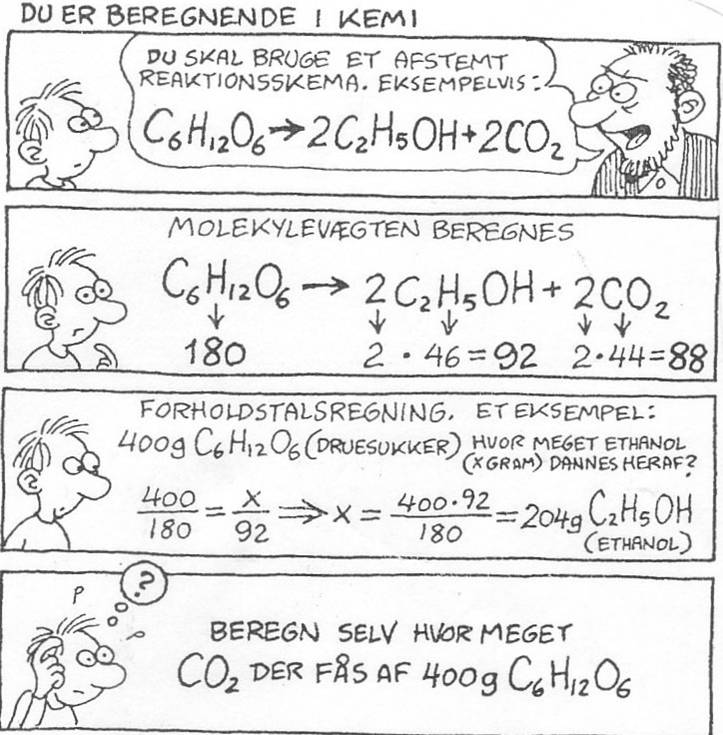 DU ER BEREGNENDE I KEMI
DU SKAL BRUGE ET AFSTEMT
REAKTIONSSKEMA. EKSEMPELVIS:
C₆H₁₂O₆→2C₂H₅OH+2CO₂
MOLEKYLEVÆGTEN BEREGNES
C₆H₁₂O₆ → 2C₂H₅OH + 2CO₂
↓ ↓ ↓ ↓ ↓
180 2 · 46 = 92 2·44=88
FORHOLDSTALSREGNING. ET EKSEMPEL:
400g C₆H₁₂O₆ (DRUESUKKER) HVOR MEGET ETHANOL
(X GRAM) DANNES HERAF?
400/180 = X/92 ⇒ X = 400·92/180 = 204g C₂H₅OH
(ETHANOL)
?
BEREGN SELV HVOR MEGET
CO₂ DER FÅS AF 400g C₆H₁₂O₆